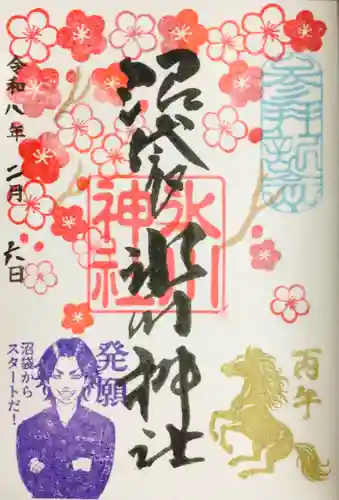 参拝記念
沼袋氷川神社
氷川神社
令和八年 二月 六日
発願
沼袋から
スタートだ!
丙午